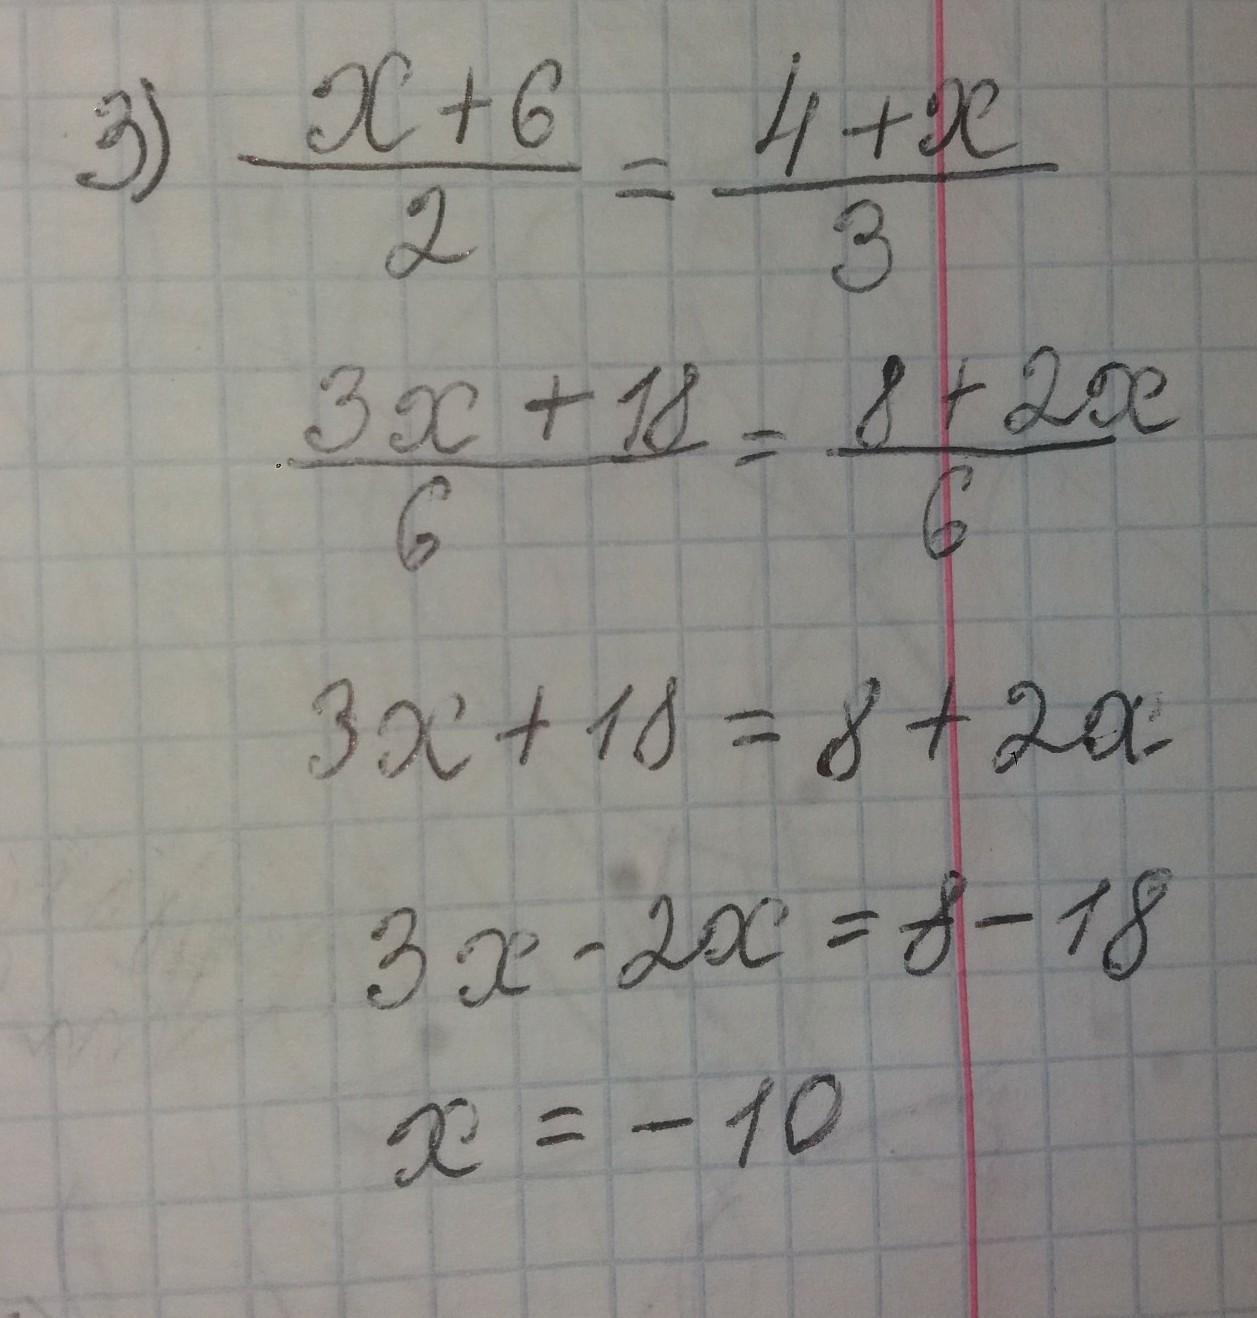 3) (x+6)/2 = (4+x)/3
(3x+18)/6 = (8+2x)/6
3x+18=8+2x
3x-2x=8-18
x=-10